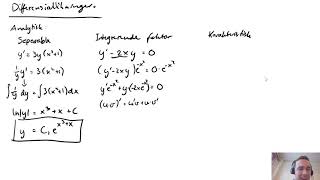 Differensiallikninger.
Analytisk
Separable
y' = 3y(x²+1)
1/y y' = 3(x²+1)
∫ 1/y dy = ∫ 3(x²+1)dx
ln|y| = x³ + x + C
y = C₁ e^(x³+x)
Integrerende faktor
y' - 2xy = 0
(y' - 2xy)e^(-x²) = 0 · e^(-x²)
y'e^(-x²) + y(-2xe^(-x²)) = 0
(u·v)' = u'v + u·v'